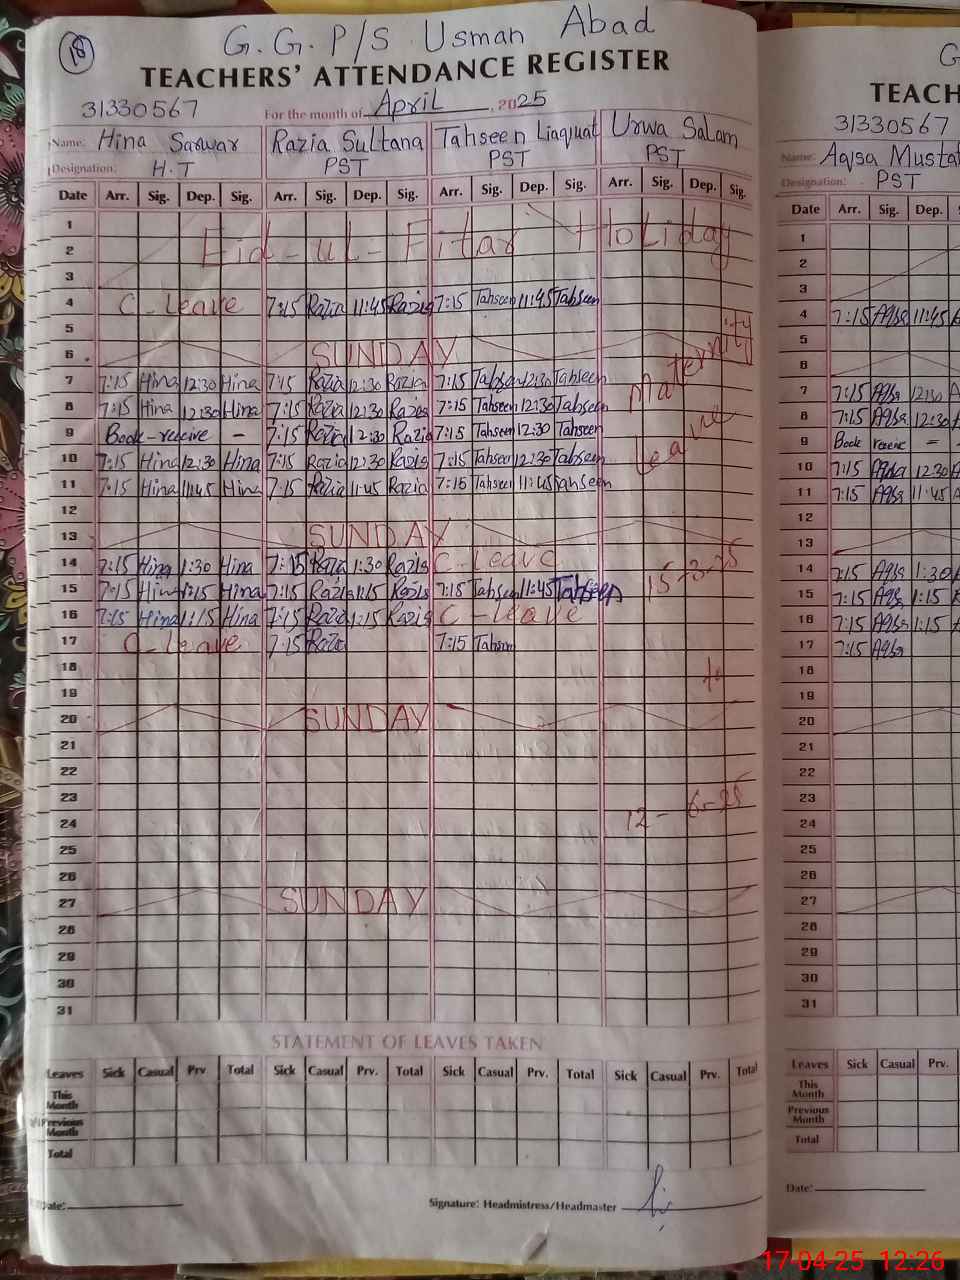 18
G.G.P/S Usman Abad
TEACHERS' ATTENDANCE REGISTER
31330567 For the month of April, 2025
Name: Hina Sarwar Razia Sultana Tahseen Liaquat Urwa Salam
Designation: H.T PST PST PST
Date Arr. Sig. Dep. Sig. Arr. Sig. Dep. Sig. Arr. Sig. Dep. Sig. Arr. Sig. Dep. Sig.
1
2 Eid-ul-Fitar Holiday
3
4 C-leave 7:15 Razia 11:45 Razia 7:15 Tahseen 11:45 Tahseen
5
6 SUNDAY
7 7:15 Hina 12:30 Hina 7:15 Razia 12:30 Razia 7:15 Tahseen 12:30 Tahseen Maternity
8 7:15 Hina 12:30 Hina 7:15 Razia 12:30 Razia 7:15 Tahseen 12:30 Tahseen
9 Book-receive - 7:15 Razia 12:30 Razia 7:15 Tahseen 12:30 Tahseen leave
10 7:15 Hina 12:30 Hina 7:15 Razia 12:30 Razia 7:15 Tahseen 12:30 Tahseen
11 7:15 Hina 11:45 Hina 7:15 Razia 11:45 Razia 7:15 Tahseen 11:45 Tahseen
12
13 SUNDAY
14 7:15 Hina 1:30 Hina 7:15 Razia 1:30 Razia C-leave
15 7:15 Hina 1:15 Hina 7:15 Razia 1:15 Razia 7:15 Tahseen 11:45 Tahseen 15-3-25
16 7:15 Hina 1:15 Hina 7:15 Razia 1:15 Razia C-leave
17 C-leave 7:15 Razia 7:15 Tahseen
18 to
19
20 SUNDAY
21
22
23
24 12-6-25
25
26
27 SUNDAY
28
29
30
31
STATEMENT OF LEAVES TAKEN
Leaves Sick Casual Prv Total Sick Casual Prv. Total Sick Casual Prv. Total Sick Casual Prv. Total
This Month
Previous Month
Total
Date: Signature: Headmistress/Headmaster
G
TEACH
31330567
Name: Aqsa Mustaf
Designation: PST
Date Arr. Sig. Dep.
1
2
3
4 7:15 Aqsa 11:45 A
5
6
7 7:15 Aqsa 12:30 A
8 7:15 Aqsa 12:30 A
9 Book receive - -
10 7:15 Aqsa 12:30 A
11 7:15 Aqsa 11:45 A
12
13
14 7:15 Aqsa 1:30 A
15 7:15 Aqsa 1:15 A
16 7:15 Aqsa 1:15 A
17 7:15 Aqsa
18
19
20
21
22
23
24
25
26
27
28
29
30
31
Leaves Sick Casual Prv.
This Month
Previous Month
Total
Date:
17-04-25 12:26